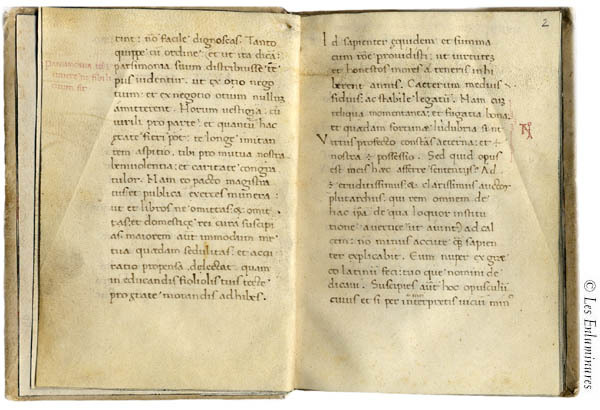 tint: nõ facile dignoscas. Tanto
quippe cũ ordine: et ut ita dicã:
parsimonia suum distribuisse tẽ
pus uidentur. ut ex otio nego
tium: et ex negotio otium nullũ
amitterent. Horum uestigia cũ
uirili pro parte: et quantũ hac
ętate fieri pot: te longe imitan
tem aspitio. tibi pro mutua nostra
beniuolentia: et caritate congra
tulor. Nam eo pacto magistra
tus et publica exerces munera:
ut et libros ne omittas: & omit
tas, et domesticę rei cura suscipi
as. maiorem aut immodum me
tua quędam sedulitas: et
propensa delectat quam
in educandis filiolis tuis
pro ętate morandis adhibes.
2
Id sapienter equidem et summa
cum rõne prouidisti: ut uirtutẽ
et honestos mores a teneris imbi
berent annis. Cęterum medius
fidius ac stabile legatũ. Nam cum
reliqua momentanea: et fugatia bona:
et quędam fortunę ludibria sint
Virtus profecto constãs ęterna: et ÷
nostra ÷ possessio. Sed quid opus
est meas hac afferre sententias? Ad
÷ eruditissimus: & clarissimus auctor
plutarchus, qui rem omnem de
hac ipa de qua loquor institu
tione a uertice ut aiunt: ad cal
cem: nõ minus accurate q̃ sapien
ter explicabit. Eum nuper ex gręco
latinũ feci: tuo que nomini de
dicaui. Suscipies autẽ hoc opusculũ
cuius et si per interpretis uicium
© Les Enluminures